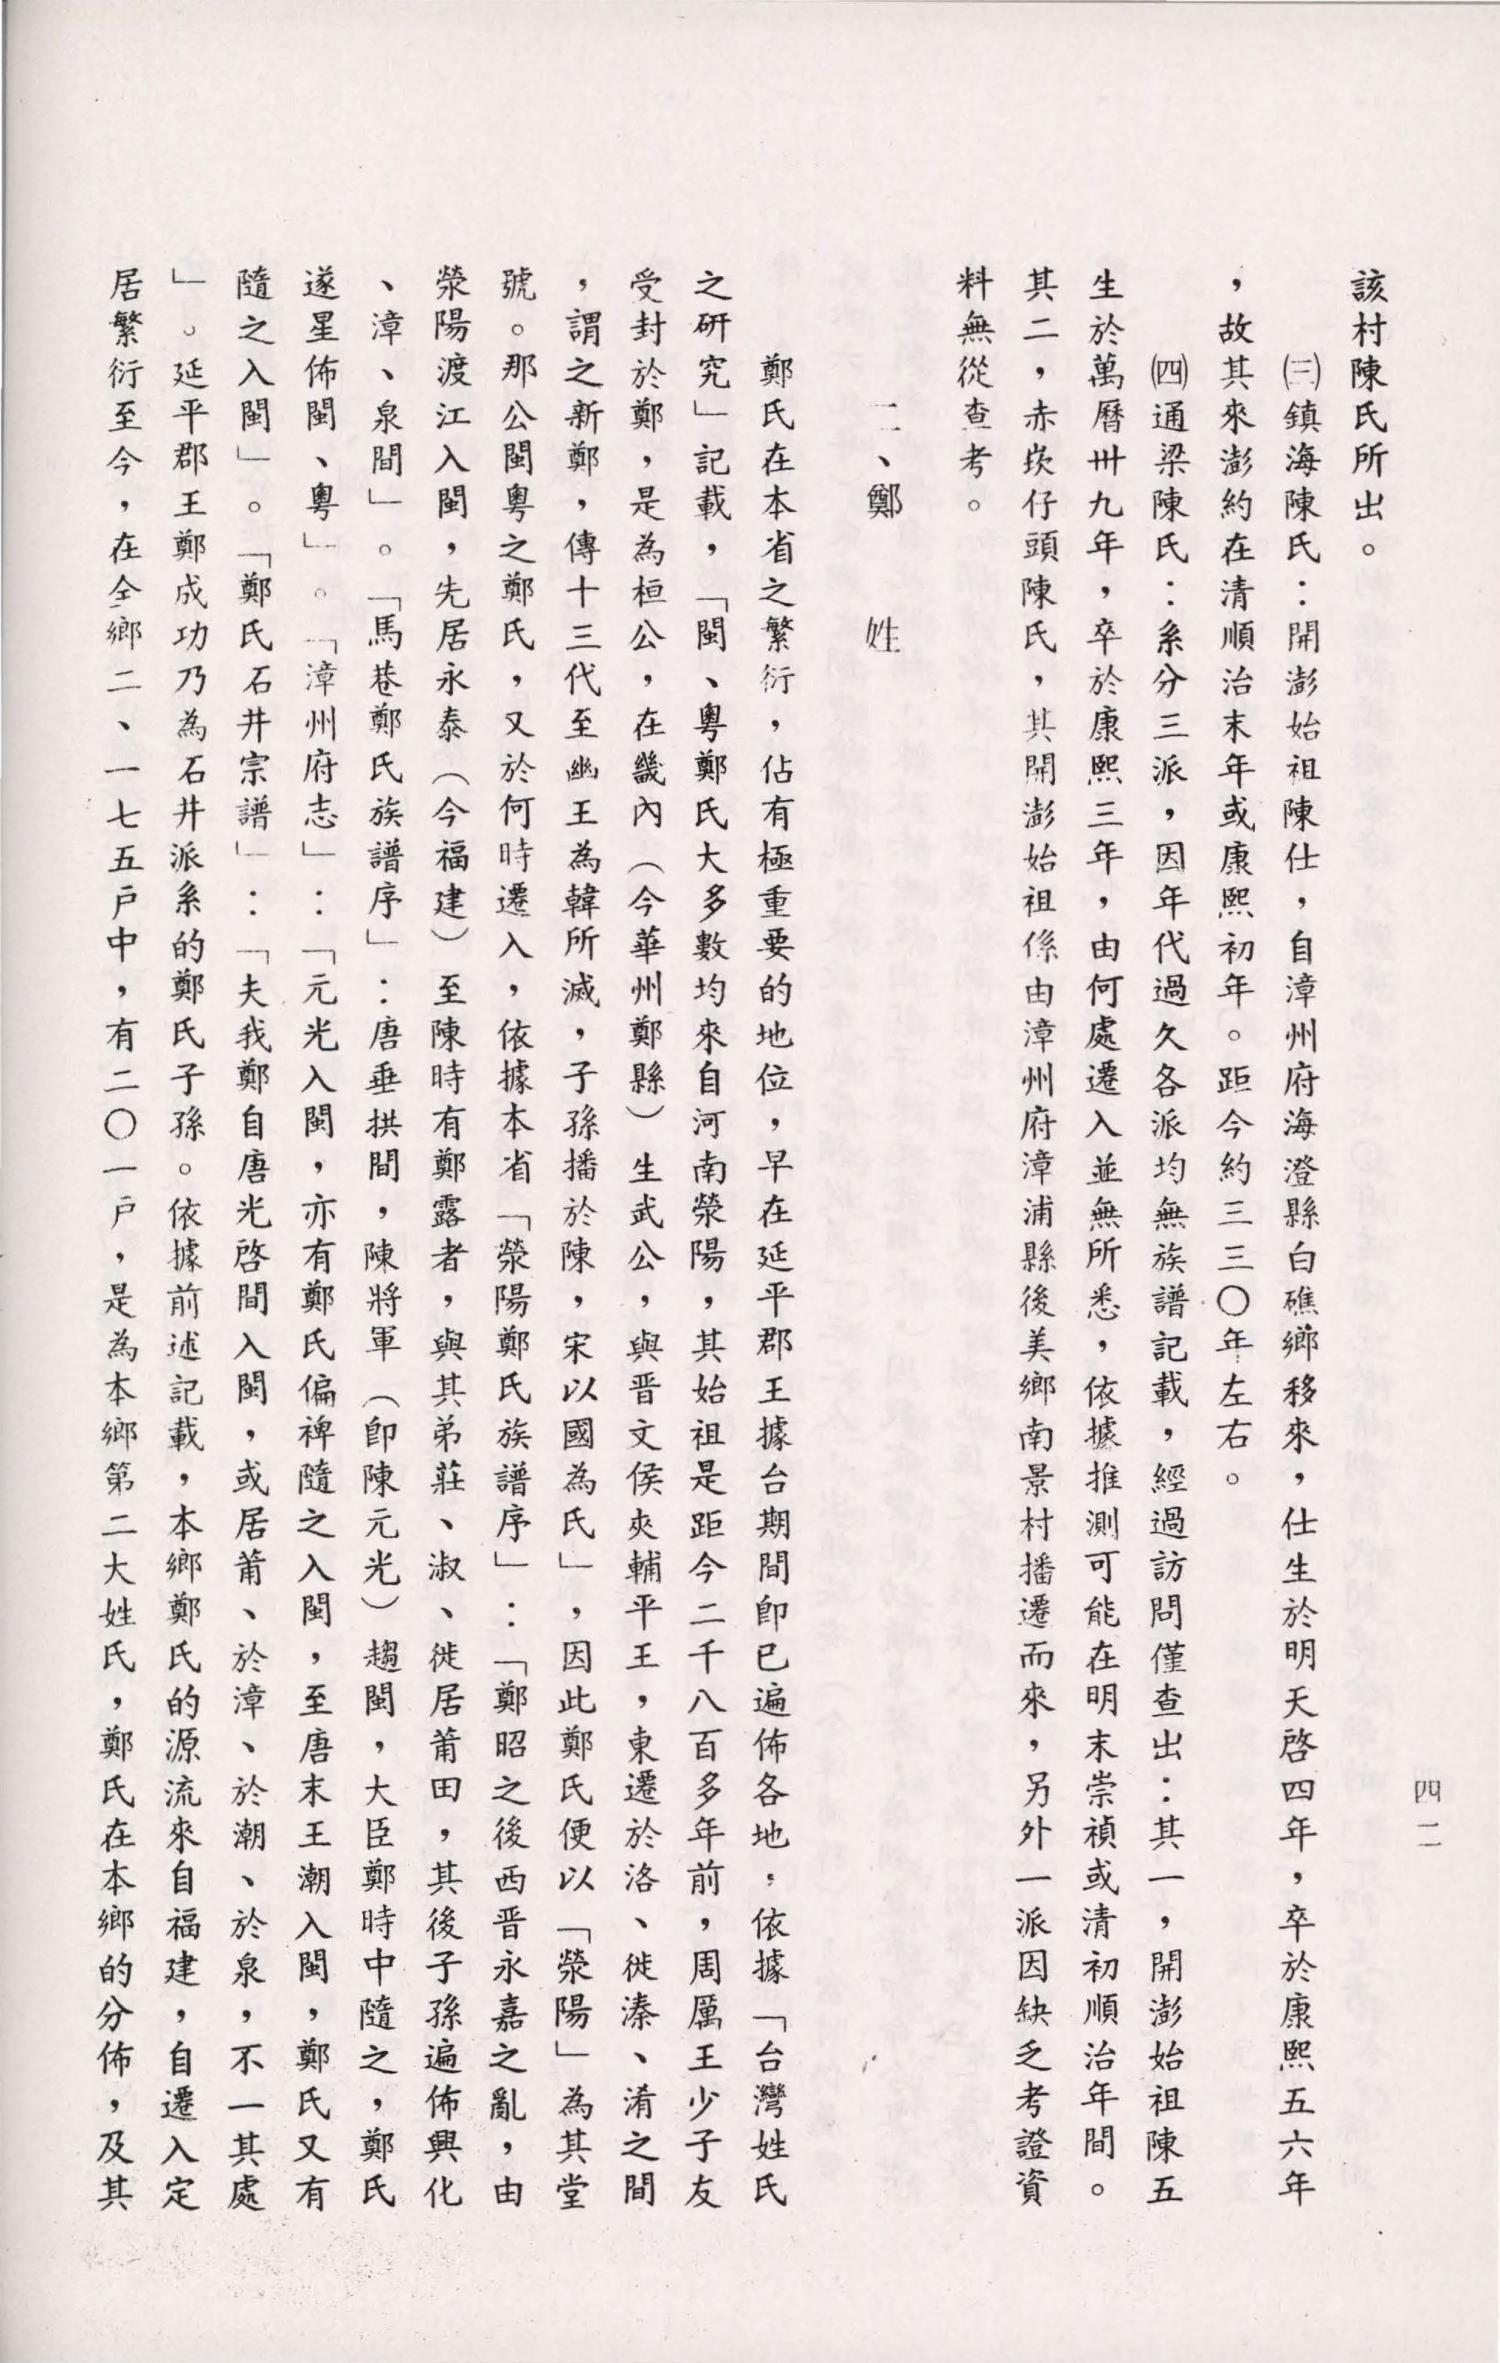 四二
該村陳氏所出。
㈢鎮海陳氏：開澎始祖陳仕，自漳州府海澄縣白礁鄉移來，仕生於明天啓四年，卒於康熙五六年
，故其來澎約在清順治末年或康熙初年。距今約三三〇年左右。
㈣通梁陳氏：系分三派，因年代過久各派均無族譜記載，經過訪問僅查出：其一，開澎始祖陳五
生於萬曆卅九年，卒於康熙三年，由何處遷入並無所悉，依據推測可能在明末崇禎或清初順治年間。
其二，赤崁仔頭陳氏，其開澎始祖係由漳州府漳浦縣後美鄉南景村播遷而來，另外一派因缺乏考證資
料無從查考。
二、鄭　姓
鄭氏在本省之繁衍，佔有極重要的地位，早在延平郡王據台期間即已遍佈各地，依據「台灣姓氏
之研究」記載，「閩、粵鄭氏大多數均來自河南滎陽，其始祖是距今二千八百多年前，周厲王少子友
受封於鄭，是為桓公，在畿內（今華州鄭縣）生武公，與晋文侯夾輔平王，東遷於洛、徙溱、淆之間
，謂之新鄭，傳十三代至幽王為韓所滅，子孫播於陳，宋以國為氏」，因此鄭氏便以「滎陽」為其堂
號。那公閩粵之鄭氏，又於何時遷入，依據本省「滎陽鄭氏族譜序」：「鄭昭之後西晋永嘉之亂，由
滎陽渡江入閩，先居永泰（今福建）至陳時有鄭露者，與其弟莊、淑、徙居莆田，其後子孫遍佈興化
、漳、泉間」。「馬巷鄭氏族譜序」：唐垂拱間，陳將軍（即陳元光）趨閩，大臣鄭時中隨之，鄭氏
遂星佈閩、粵」。「漳州府志」：「元光入閩，亦有鄭氏偏裨隨之入閩，至唐末王潮入閩，鄭氏又有
隨之入閩」。「鄭氏石井宗譜」：「夫我鄭自唐光啓間入閩，或居莆、於漳、於潮、於泉，不一其處
」。延平郡王鄭成功乃為石井派系的鄭氏子孫。依據前述記載，本鄉鄭氏的源流來自福建，自遷入定
居繁衍至今，在全鄉二、一七五戶中，有二〇一戶，是為本鄉第二大姓氏，鄭氏在本鄉的分佈，及其